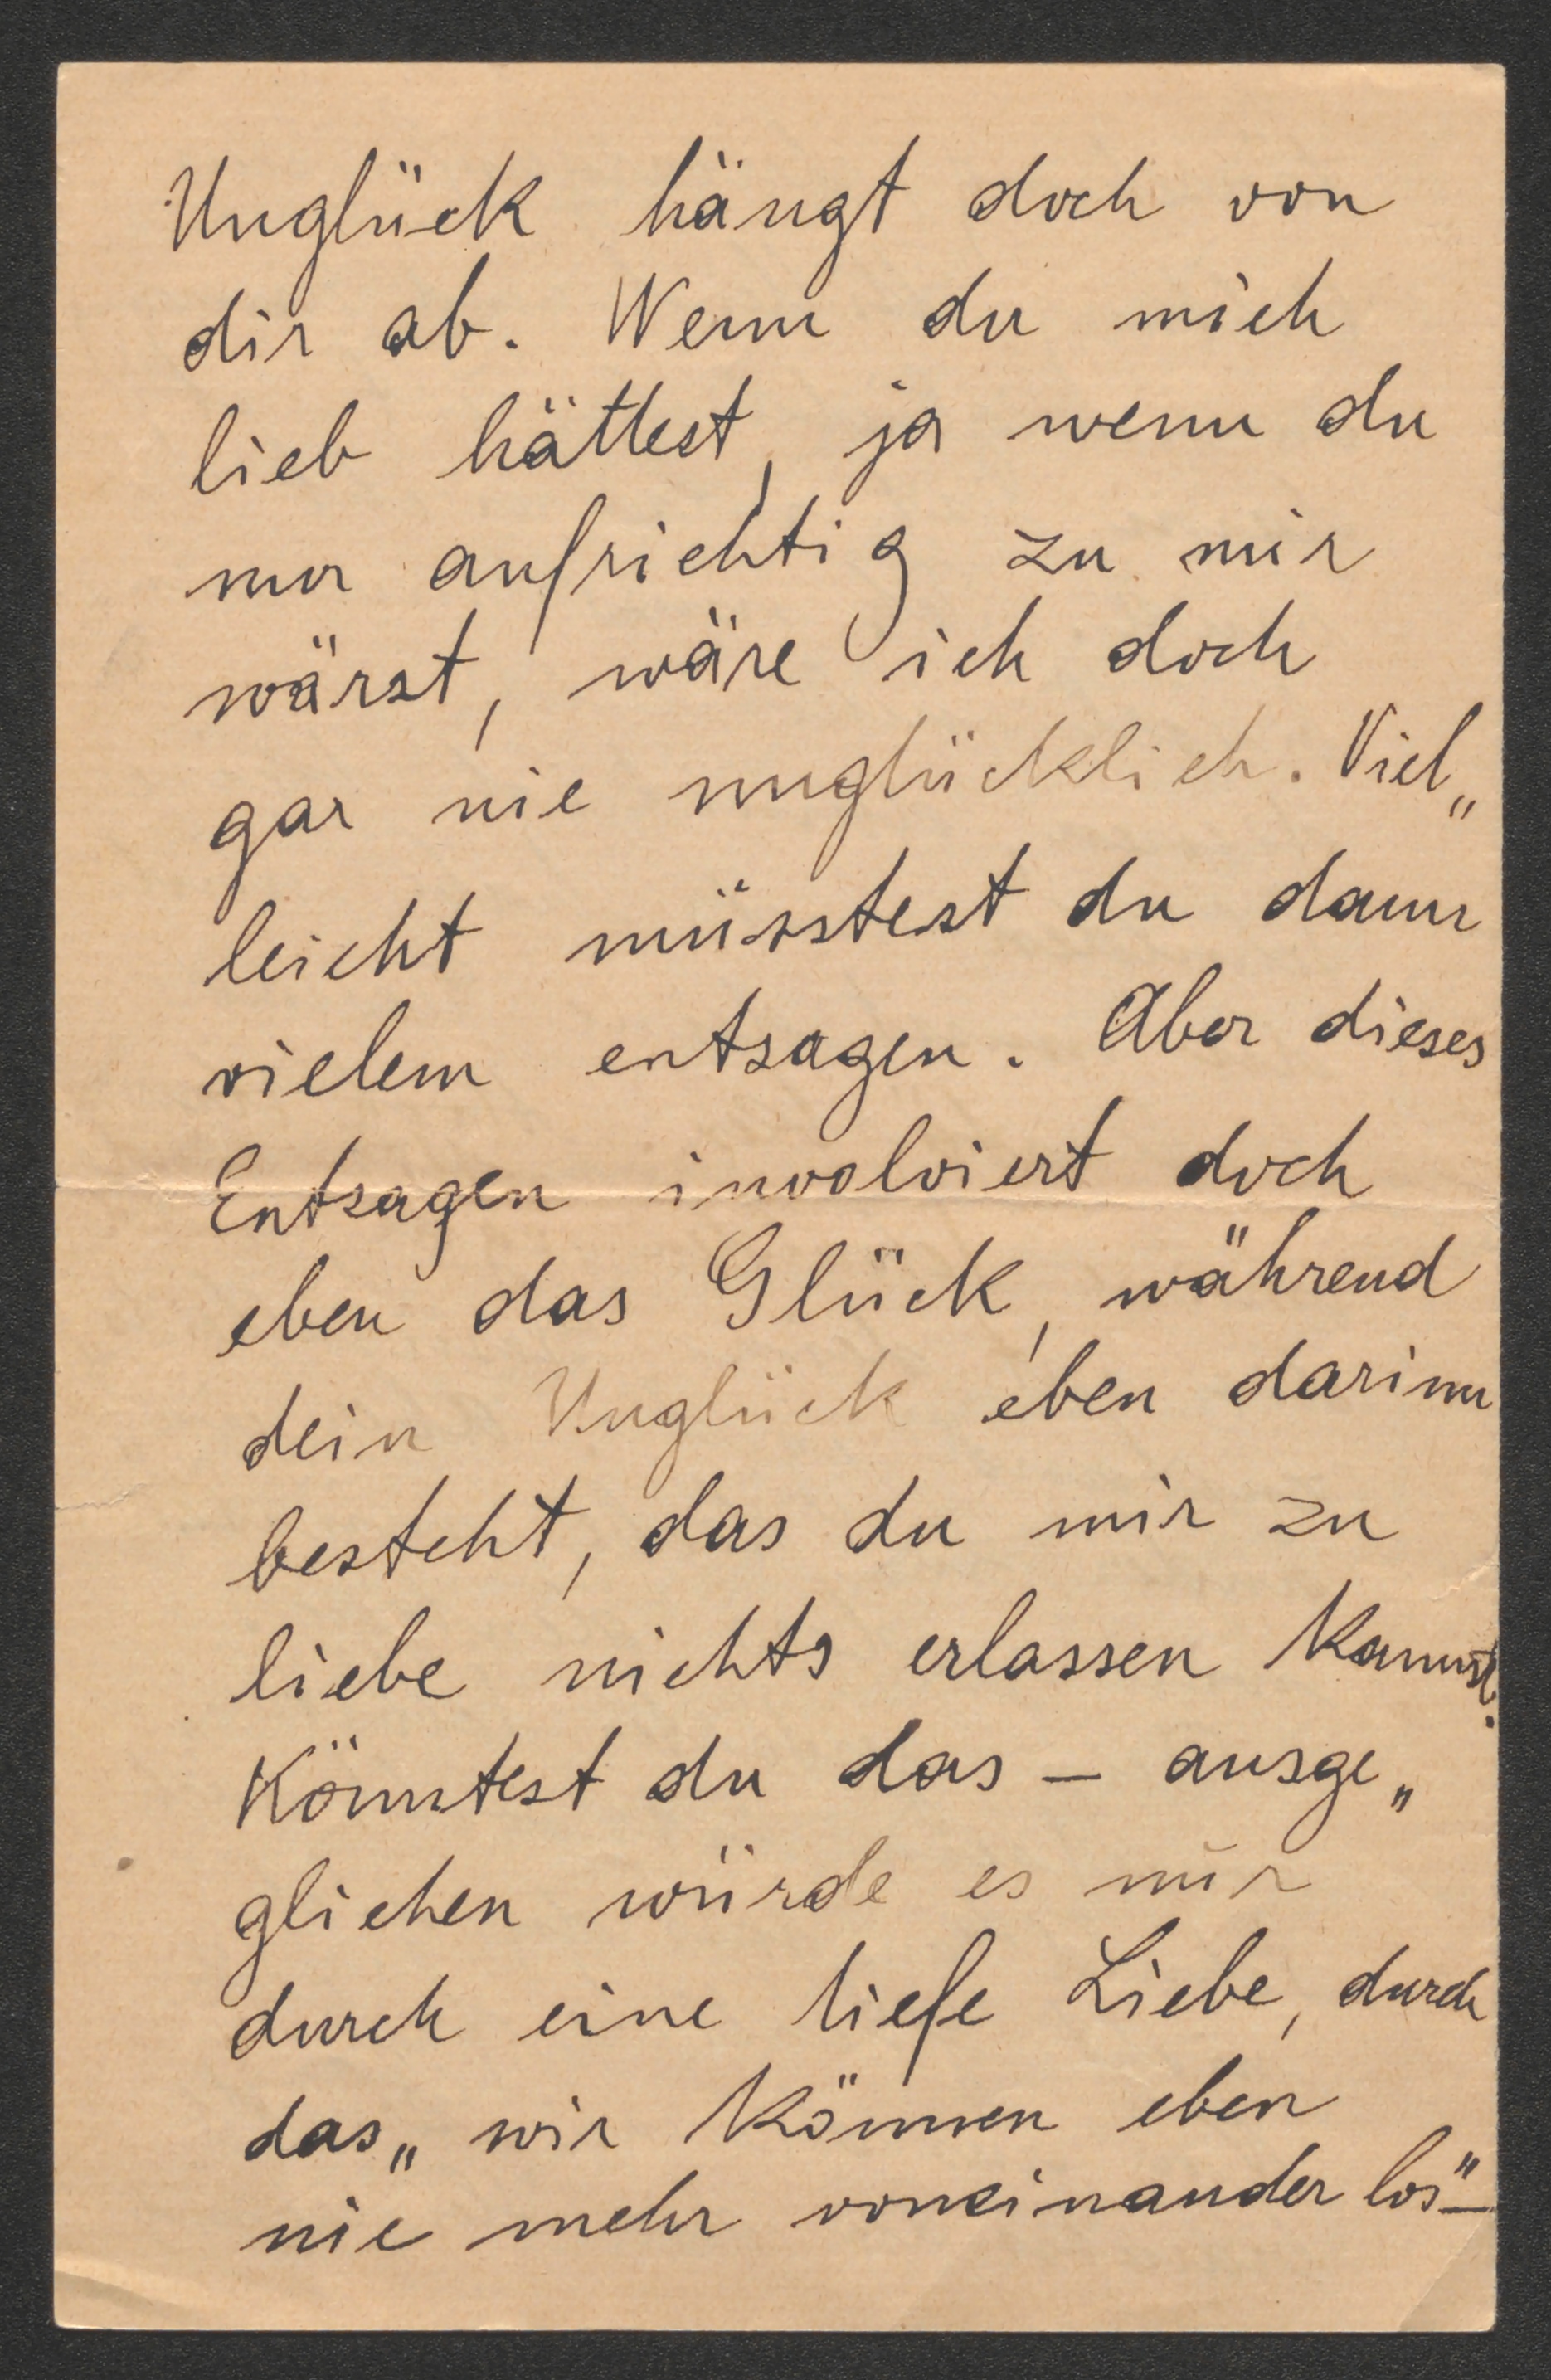 Unglück hängt doch von
dir ab. Wenn du mich
lieb hättest, ja wenn du
nur aufrichtig zu mir
wärst, wäre ich doch
gar nie unglücklich. Viel„
leicht müsstest du dann
vielem entsagen. Aber dieses
Entsagen involviert doch
eben das Glück, während
dein Unglück eben darinn
besteht, das du mir zu
liebe nichts erlassen kannst.
Könntest du das – ausge„
glichen würde es nur
durch eine tiefe Liebe, durch
das „wir können eben
nie mehr voneinander los" –